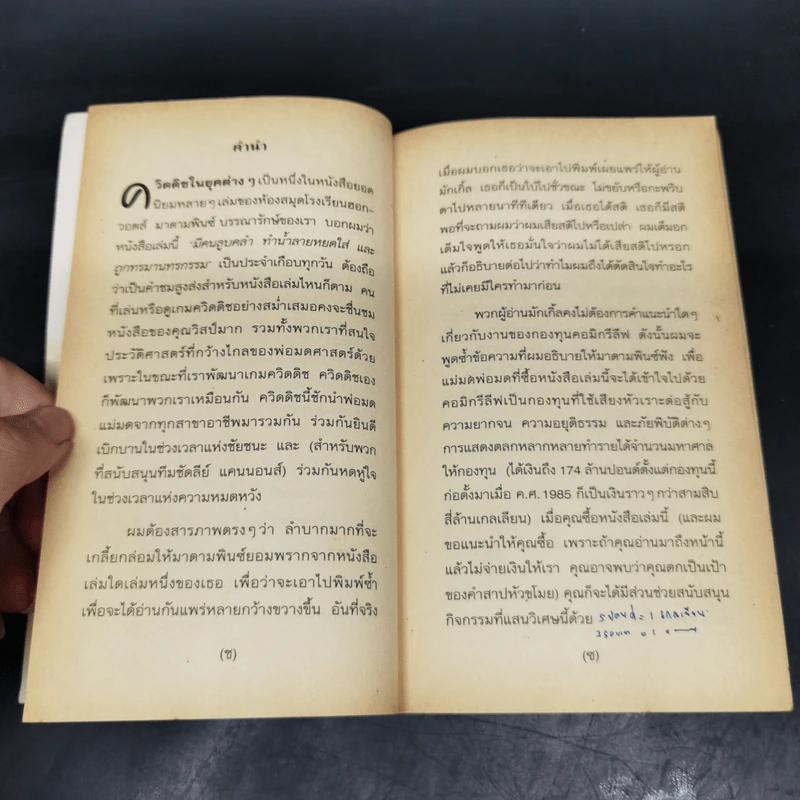 คำนำ
ควิดดิชในยุคต่างๆ เป็นหนึ่งในหนังสือยอด
นิยมหลายๆ เล่มของห้องสมุดโรงเรียนฮอก-
วอตส์ มาดามพินซ์ บรรณารักษ์ของเรา บอกผมว่า
หนังสือเล่มนี้ "มีคนลูบคลำ ทำน้ำลายหยดใส่ และ
ถูกทรมานทรกรรม" เป็นประจำเกือบทุกวัน ต้องถือ
ว่าเป็นคำชมสูงส่งสำหรับหนังสือเล่มไหนก็ตาม คน
ที่เล่นหรือดูเกมควิดดิชอย่างสม่ำเสมอคงจะชื่นชม
หนังสือของคุณวิสป์มาก รวมทั้งพวกเราที่สนใจ
ประวัติศาสตร์ที่กว้างไกลของพ่อมดศาสตร์ด้วย
เพราะในขณะที่เราพัฒนาเกมควิดดิช ควิดดิชเอง
ก็พัฒนาพวกเราเหมือนกัน ควิดดิชนี้ชักนำพ่อมด
แม่มดจากทุกสาขาอาชีพมารวมกัน ร่วมกันยินดี
เบิกบานในช่วงเวลาแห่งชัยชนะ และ (สำหรับพวก
ที่สนับสนุนทีมชัดลีย์ แคนนอนส์) ร่วมกันหดหู่ใจ
ในช่วงเวลาแห่งความหมดหวัง
ผมต้องสารภาพตรงๆ ว่า ลำบากมากที่จะ
เกลี้ยกล่อมให้มาดามพินซ์ยอมพรากจากหนังสือ
เล่มใดเล่มหนึ่งของเธอ เพื่อว่าจะเอาไปพิมพ์ซ้ำ
เพื่อจะได้อ่านกันแพร่หลายกว้างขวางขึ้น อันที่จริง
(ช)
เมื่อผมบอกเธอว่าจะเอาไปพิมพ์เผยแพร่ให้ผู้อ่าน
มักเกิ้ล เธอก็เป็นใบ้ไปชั่วขณะ ไม่ขยับหรือกะพริบ
ตาไปหลายนาทีทีเดียว เมื่อเธอได้สติ เธอก็มีสติ
พอที่จะถามผมว่าผมเสียสติไปหรือเปล่า ผมเต็มอก
เต็มใจพูดให้เธอมั่นใจว่าผมไม่ได้เสียสติไปหรอก
แล้วก็อธิบายต่อไปว่าทำไมผมถึงได้ตัดสินใจทำอะไร
ที่ไม่เคยมีใครทำมาก่อน
พวกผู้อ่านมักเกิ้ลคงไม่ต้องการคำแนะนำใดๆ
เกี่ยวกับงานของกองทุนคอมิกรีลีฟ ดังนั้นผมจะ
พูดซ้ำข้อความที่ผมอธิบายให้มาดามพินซ์ฟัง เพื่อ
แม่มดพ่อมดที่ซื้อหนังสือเล่มนี้จะได้เข้าใจไปด้วย
คอมิกรีลีฟเป็นกองทุนที่ใช้เสียงหัวเราะต่อสู้กับ
ความยากจน ความอยุติธรรม และภัยพิบัติต่างๆ
การแสดงตลกหลากหลายทำรายได้จำนวนมหาศาล
ให้กองทุน (ได้เงินถึง 174 ล้านปอนด์ตั้งแต่กองทุนนี้
ก่อตั้งมาเมื่อ ค.ศ. 1985 ก็เป็นเงินราวๆ กว่าสามสิบ
สี่ล้านเกลเลียน) เมื่อคุณซื้อหนังสือเล่มนี้ (และผม
ขอแนะนำให้คุณซื้อ เพราะถ้าคุณอ่านมาถึงหน้านี้
แล้วไม่จ่ายเงินให้เรา คุณอาจพบว่าคุณตกเป็นเป้า
ของคำสาปหัวขโมย) คุณก็จะได้มีส่วนช่วยสนับสนุน
กิจกรรมที่แสนวิเศษนี้ด้วย
(ซ)